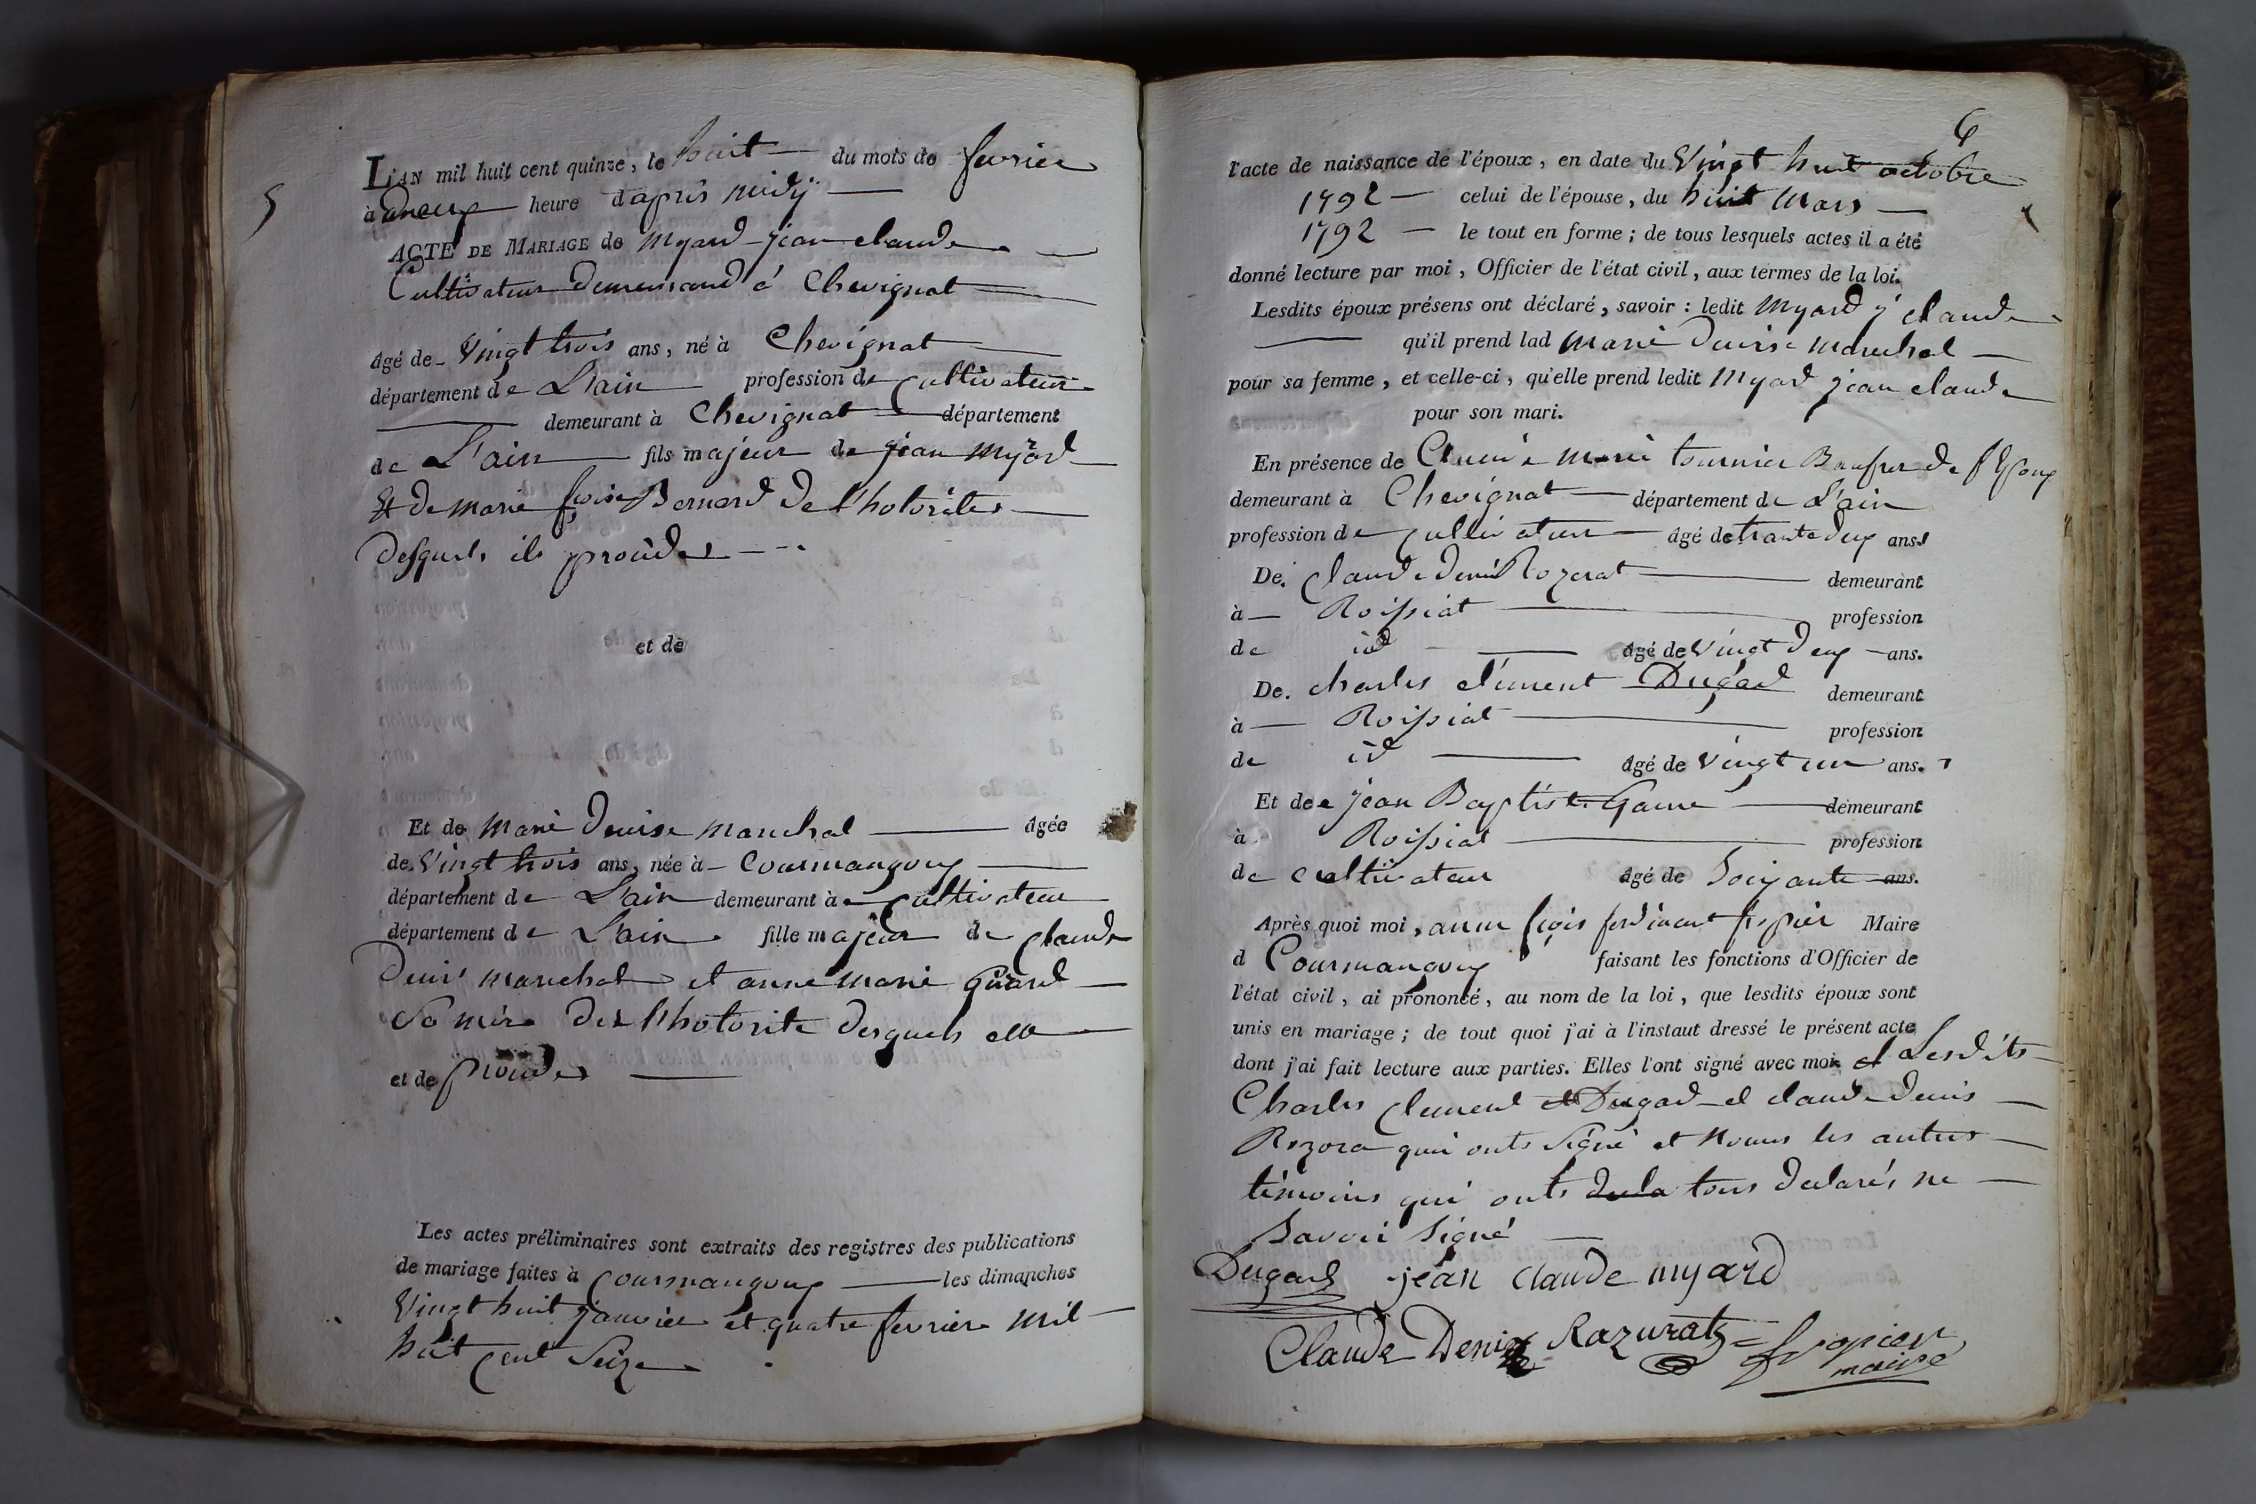 5
L'AN mil huit cent quinze, le huit du mois de fevrier
à heure d'apres midÿ
ACTE DE MARIAGE de Myard jean claude
Cultivateur demeurand á Chevignat
âgé de Vingt trois ans, né à Chevignat
département de L'ain profession de Cultivateur
demeurant à Chevignat département
de L'ain fils majeur de jean Myard
& de marie Bernard de l'hotorités
desquels ils
et de
Et de Marie denise marechal âgée
de Vingt trois ans, née à Courmangoux
département de L'ain demeurant à cultivateur
département de L'ain fille majeur de Claude
denis marechal et anne marie
sa mère de l'hotorite desquels elle
et de
Les actes préliminaires sont extraits des registres des publications
de mariage faites à Courmangoux les dimanches
Vingt huit janvier et quatre fevrier mil
huit cent Seize
6
l'acte de naissance de l'époux, en date du Vingt huit octobre
1792 celui de l'épouse, du huit Mars
1792 le tout en forme ; de tous lesquels actes il a été
donné lecture par moi, Officier de l'état civil, aux termes de la loi.
Lesdits époux présens ont déclaré, savoir : ledit Myard j claude
qu'il prend lad marie denise marechal
pour sa femme, et celle-ci, qu'elle prend ledit Myard jean claude
pour son mari.
En présence de marie tournier Baufrer de
demeurant à Chevignat département de L'ain
profession de cultivateur âgé de trante deux ans
De. Claude denis Rozerat demeurant
à Roissiat profession
de id âgé de Vingt deux ans.
De. charles clement Dugad demeurant
à Roissiat profession
de id âgé de Vingt un ans.
Et de jean Baptiste demeurant
à Roissiat profession
de cultivateur âgé de Soixante ans.
Après quoi moi, anne frçois ferdinant Maire
d Courmangoux faisant les fonctions d'Officier de
l'état civil, ai prononcé, au nom de la loi, que lesdits époux sont
unis en mariage ; de tout quoi j'ai à l'instant dressé le présent acte
dont j'ai fait lecture aux parties. Elles l'ont signé avec moi et Lesdits
Charles Clement Dugad et claude denis
Rozora qui onts Signé et Nomes les autres
témoins qui onts tous declarés ne
Savoir Signé
Dugad jean claude myard
Claude Denis Razurat
maire